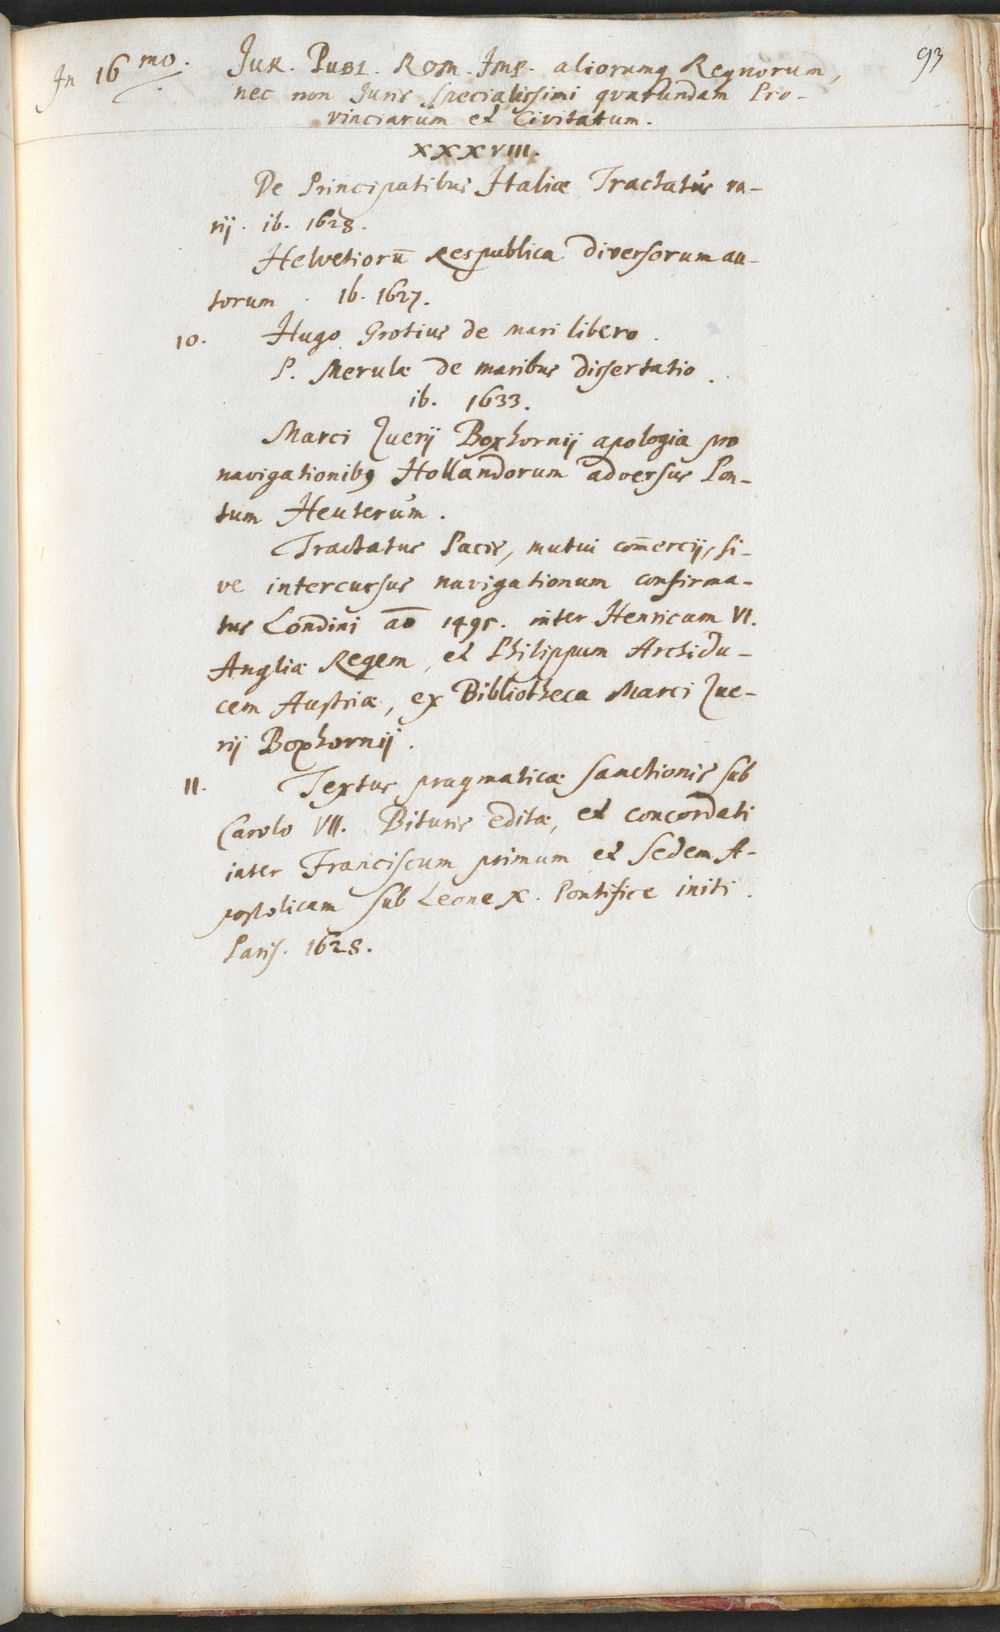 In 16 mo. Jur. Publ. Rom. Imp. aliorumq Regnorum, 93
nec non Juris specialissimi quarundam Pro-
vinciarum et Civitatum.
XXXVIII.
De Principatibus Italiæ Tractatus va-
rij. ib. 1628.
Helvetiorū Respublica diversorum au-
torum. ib. 1627.
10. Hugo Grotius de mari libero.
P. Merulæ de maribus dissertatio.
ib. 1633.
Marci Zuerij Boxhornij apologia pro
navigationibq Hollandorum adversus Pon-
tum Heuterum.
Tractatus Pacis, mutui com̄ercij, si-
ve intercursus navigationum confirma-
tus Londini aō 1495. inter Henricum VI.
Angliæ Regem, et Philippum Archidu-
cem Austriæ, ex Bibliotheca Marci Zue-
rij Boxhornij.
11. Textus pragmaticæ sanctionis sub
Carolo VII. Bituris editæ, et concordati
inter Franciscum primum et Sedem A-
postolicam sub Leone X. Pontifice initi.
Paris. 1628.